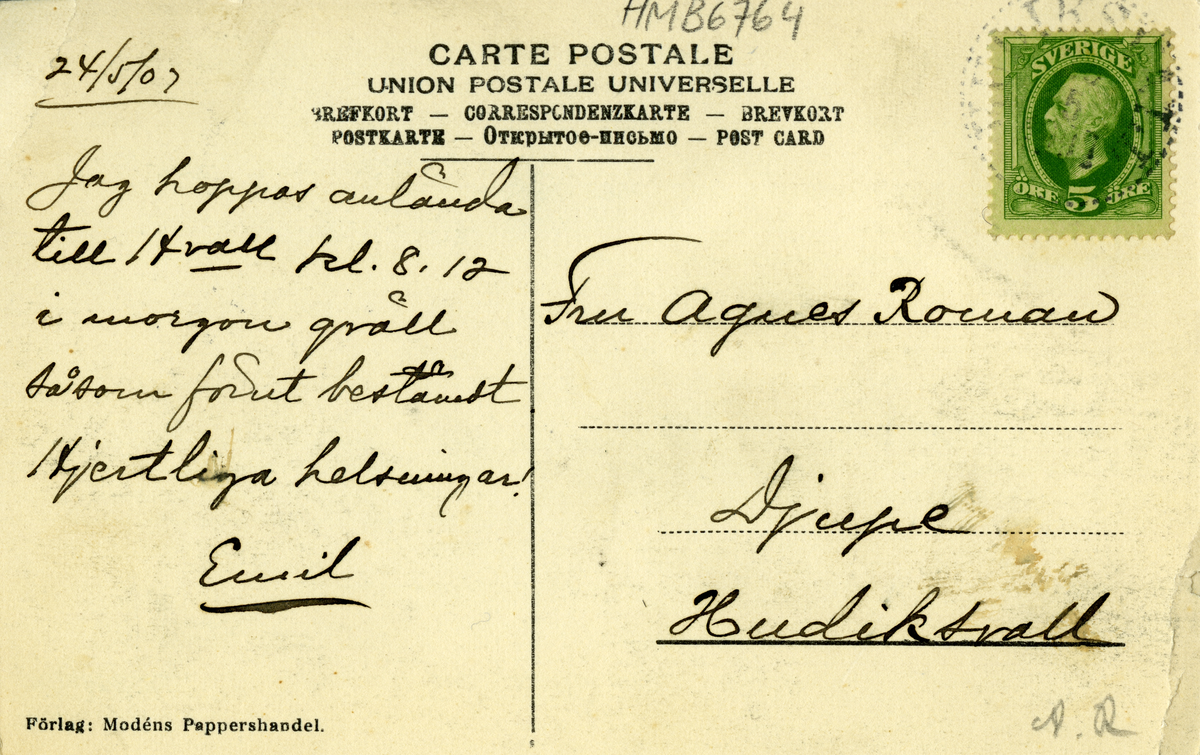 HMB6764
CARTE POSTALE
UNION POSTALE UNIVERSELLE
BREFKORT — CORRESPONDENZKARTE — BREVKORT
POSTKARTE — Открытое-письмо — POST CARD
SVERIGE
ÖRE 5 ÖRE
24/5/07
Jag hoppas anlända
till Hvall kl. 8. 12
i morgon qväll
såsom förut bestämdt
Hjertliga helsningar!
Emil
Fru Agnes Roman
Djupe
Hudiksvall
Förlag: Modéns Pappershandel.
A. R